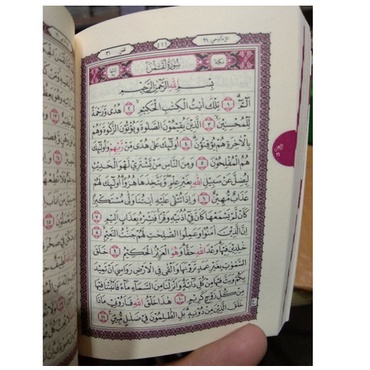 ٤١١
سُورَةُ لُقْمَان
بِسْمِ اللَّهِ الرَّحْمَٰنِ الرَّحِيمِ
الٓمٓ ١ تِلْكَ ءَايَٰتُ الْكِتَٰبِ الْحَكِيمِ ٢ هُدًى وَرَحْمَةً
لِّلْمُحْسِنِينَ ٣ الَّذِينَ يُقِيمُونَ الصَّلَوٰةَ وَيُؤْتُونَ الزَّكَوٰةَ وَهُم
بِالْءَاخِرَةِ هُمْ يُوقِنُونَ ٤ أُو۟لَٰٓئِكَ عَلَىٰ هُدًى مِّن رَّبِّهِمْ وَأُو۟لَٰٓئِكَ
هُمُ الْمُفْلِحُونَ ٥ وَمِنَ النَّاسِ مَن يَشْتَرِي لَهْوَ الْحَدِيثِ
لِيُضِلَّ عَن سَبِيلِ اللَّهِ بِغَيْرِ عِلْمٍ وَيَتَّخِذَهَا هُزُوًا أُو۟لَٰٓئِكَ لَهُمْ
عَذَابٌ مُّهِينٌ ٦ وَإِذَا تُتْلَىٰ عَلَيْهِ ءَايَٰتُنَا وَلَّىٰ مُسْتَكْبِرًا
كَأَن لَّمْ يَسْمَعْهَا كَأَنَّ فِىٓ أُذُنَيْهِ وَقْرًا فَبَشِّرْهُ بِعَذَابٍ أَلِيمٍ
٧ إِنَّ الَّذِينَ ءَامَنُوا۟ وَعَمِلُوا۟ الصَّٰلِحَٰتِ لَهُمْ جَنَّٰتُ النَّعِيمِ
٨ خَٰلِدِينَ فِيهَا وَعْدَ اللَّهِ حَقًّا وَهُوَ الْعَزِيزُ الْحَكِيمُ ٩ خَلَقَ
السَّمَٰوَٰتِ بِغَيْرِ عَمَدٍ تَرَوْنَهَا وَأَلْقَىٰ فِي الْأَرْضِ رَوَٰسِيَ أَن تَمِيدَ
بِكُمْ وَبَثَّ فِيهَا مِن كُلِّ دَآبَّةٍ وَأَنزَلْنَا مِنَ السَّمَآءِ مَآءً فَأَنبَتْنَا فِيهَا
مِن كُلِّ زَوْجٍ كَرِيمٍ ١٠ هَٰذَا خَلْقُ اللَّهِ فَأَرُونِي مَاذَا
خَلَقَ الَّذِينَ مِن دُونِهِ بَلِ الظَّٰلِمُونَ فِي ضَلَٰلٍ مُّبِينٍ ١١